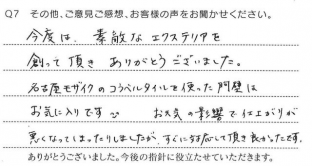 Q7 その他、ご意見ご感想、お客様の声をお聞かせください。
今度は、素敵なエクステリアを
創って頂き ありがとうございました。
名古屋モザイクのコラベルタイルを使った門壁は
お気に入りです お天気の影響で仕上がりが
悪くなってしまったりしましたが、すぐに対応して頂き良かったです。
ありがとうございました。今後の指針に役立たせていただきます。